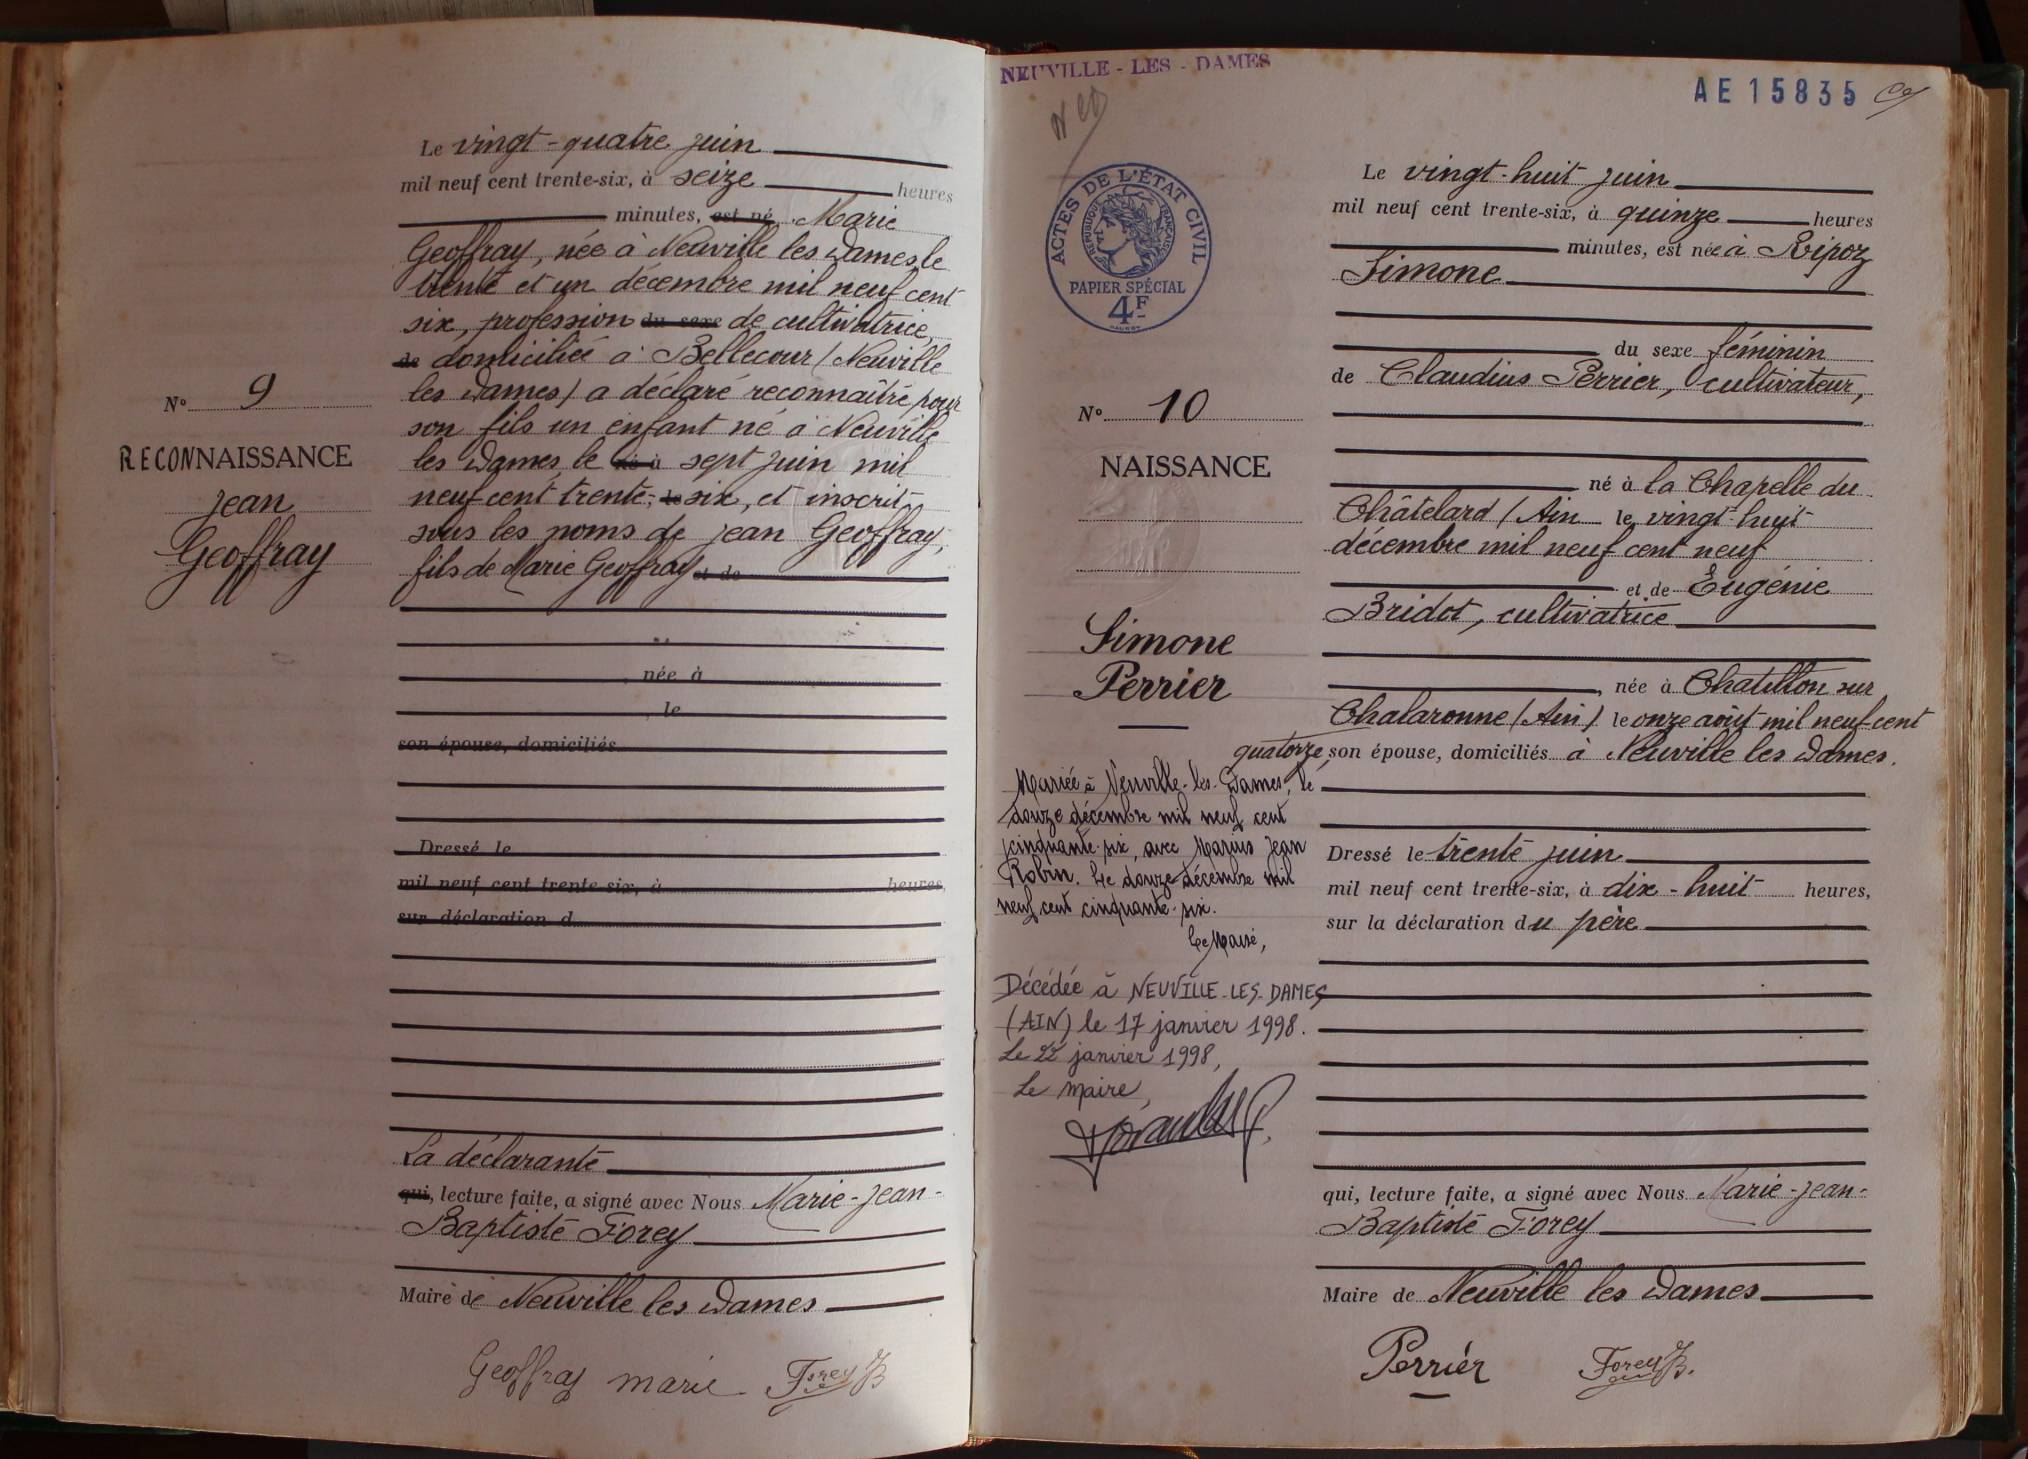 Le vingt-quatre juin
mil neuf cent trente-six, à seize heures
minutes, est né Marie
Geoffray, née à Neuville les Dames le
trente et un décembre mil neuf cent
six, profession du sexe de cultivatrice,
de domiciliée à Bellecour (Neuville
les Dames) a déclaré reconnaître pour
son fils un enfant né à Neuville
les Dames, le né à sept juin mil
neuf cent trente-, le six, et inscrit
sous les noms de jean Geoffray,
fils de Marie Geoffray et de
née à
, le
son épouse, domiciliés
Dressé le
mil neuf cent trente-six, à heures,
sur déclaration d
La déclarante
qui, lecture faite, a signé avec Nous Marie-jean-
Baptiste Forey
Maire de Neuville les Dames
Geoffray marie Forey JB
N° 9
RECONNAISSANCE
jean
Geoffray
NEUVILLE - LES - DAMES
AE 15835
ACTES DE L'ÉTAT CIVIL
RÉPUBLIQUE FRANÇAISE
PAPIER SPÉCIAL
4F
N° 10
NAISSANCE
Simone
Perrier
Mariée à Neuville-les-Dames, le
douze décembre mil neuf cent
cinquante-six, avec Marius Jean
Robin. Le douze décembre mil
neuf cent cinquante-six.
Le Maire,
Décédée à NEUVILLE-LES-DAMES
(AIN) le 17 janvier 1998.
Le 22 janvier 1998,
Le Maire,
Le vingt-huit juin
mil neuf cent trente-six, à quinze heures
minutes, est née à Ripoz
Simone
du sexe féminin
de Claudius Perrier, cultivateur,
né à la Chapelle du
Châtelard (Ain le vingt-huit
décembre mil neuf cent neuf
et de Eugénie
Bridot, cultivatrice
, née à Chatillon sur
Chalaronne (Ain) le onze août mil neuf cent
quatorze, son épouse, domiciliés à Neuville les Dames.
Dressé le trente juin
mil neuf cent trente-six, à dix-huit heures,
sur la déclaration du père
qui, lecture faite, a signé avec Nous Marie-jean-
Baptiste Forey
Maire de Neuville les Dames
Perrier Forey JB.